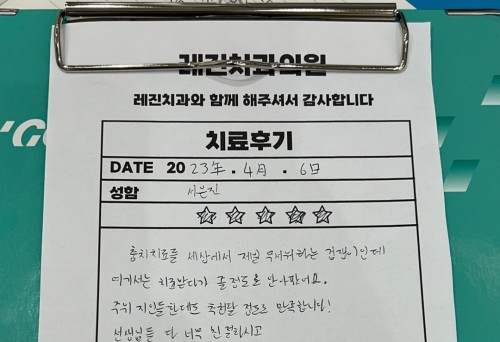 레진치과의원
레진치과와 함께 해주셔서 감사합니다
치료후기
DATE 2023年. 4月. 6日
성함 서은진
충치치료를 세상에서 제일 무서워하는 겁쟁이인데
여기서는 치료받다가 졸정도로 안아파요.
주위 지인들한테도 추천할 정도로 만족합니다!
선생님들 다 너무 친절하시고